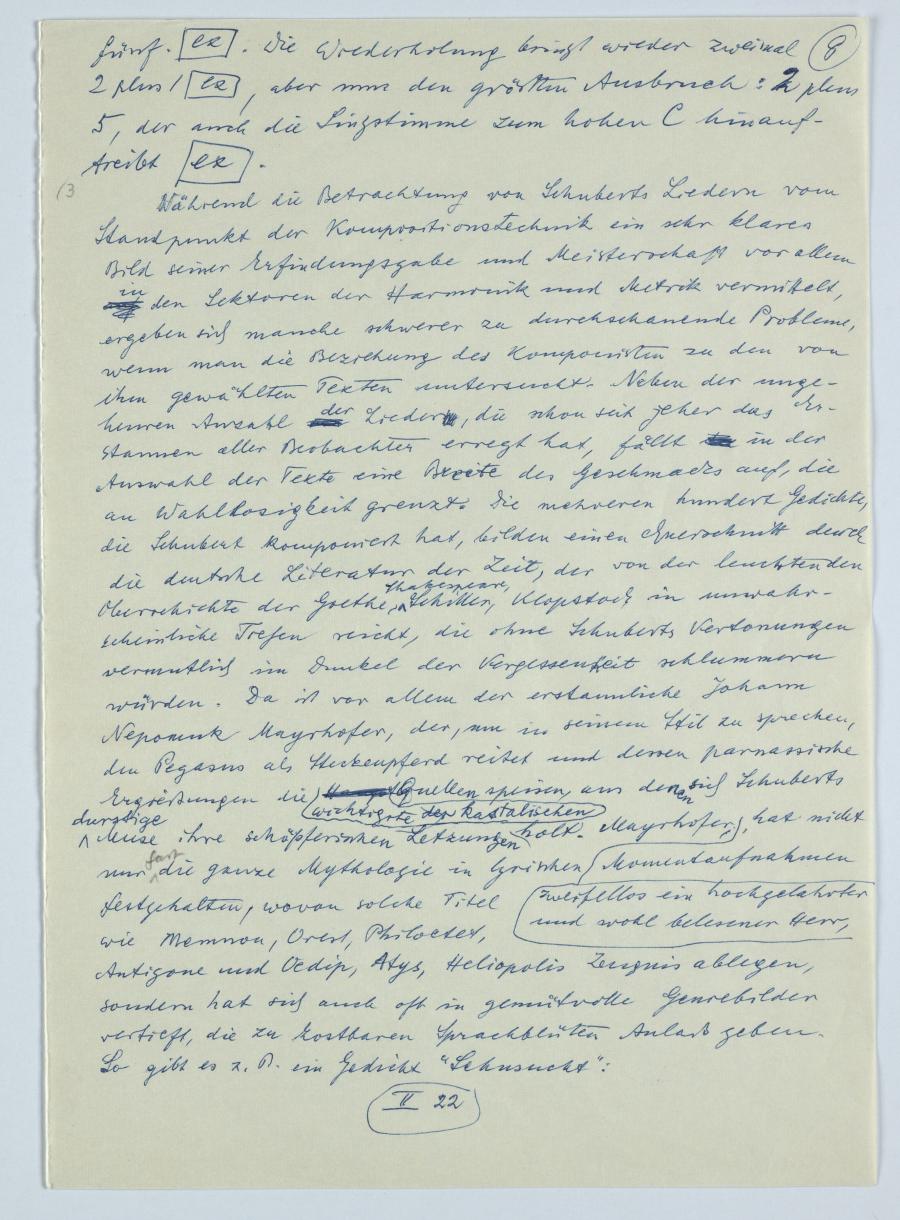 fünf. ex . Die Wiederholung bringt wieder zweimal 9
2 plus 1 ex , aber nun den größten Ausbruch : 2 plus
5, der auch die Singstimme zum hohen C hinauf-
treibt ex .
(3
Während die Betrachtung von Schuberts Liedern vom
Standpunkt der Kompositionstechnik ein sehr klares
Bild seiner Erfindungsgabe und Meisterschaft vor allem
in den Sektoren der Harmonik und Metrik vermittelt,
ergeben sich manche schwerer zu durchschauende Probleme,
wenn man die Beziehung des Komponisten zu den von
ihm gewählten Texten untersucht. Neben der unge-
heuren Anzahl der Lieder, die schon seit jeher das Er-
staunen aller Beobachter erregt hat, fällt in der
Auswahl der Texte eine Breite des Geschmacks auf, die
an Wahllosigkeit grenzt. Die mehreren hundert Gedichte,
die Schubert komponiert hat, bilden einen Querschnitt durch
die deutsche Literatur der Zeit, der von der leuchtenden
Shakespeare,
Oberschichte der Goethe, Schiller, Klopstock in unwahr-
scheinliche Tiefen reicht, die ohne Schuberts Vertonungen
vermutlich im Dunkel der Vergessenheit schlummern
würden. Da ist vor allem der erstaunliche Johann
Nepomuk Mayrhofer, der, um in seinem Stil zu sprechen,
den Pegasus als Steckenpferd reitet und dessen parnassische
Ergießungen die Quellen speisen, aus denen sich Schuberts
wichtigste der kastalischen
durstige
Muse ihre schöpferischen Letzungen holt. Mayrhofer, hat nicht
nur fast die ganze Mythologie in lyrischen Momentaufnahmen
festgehalten, wovon solche Titel
zweifellos ein hochgelahrter
und wohl belesener Herr,
wie Memnon, Orest, Philoctet,
Antigone und Oedip, Atys, Heliopolis Zeugnis ablegen,
sondern hat sich auch oft in gemütvolle Genrebilder
vertieft, die zu kostbaren Sprachblüten Anlaß geben.
So gibt es z. B. ein Gedicht "Sehnsucht":
II 22